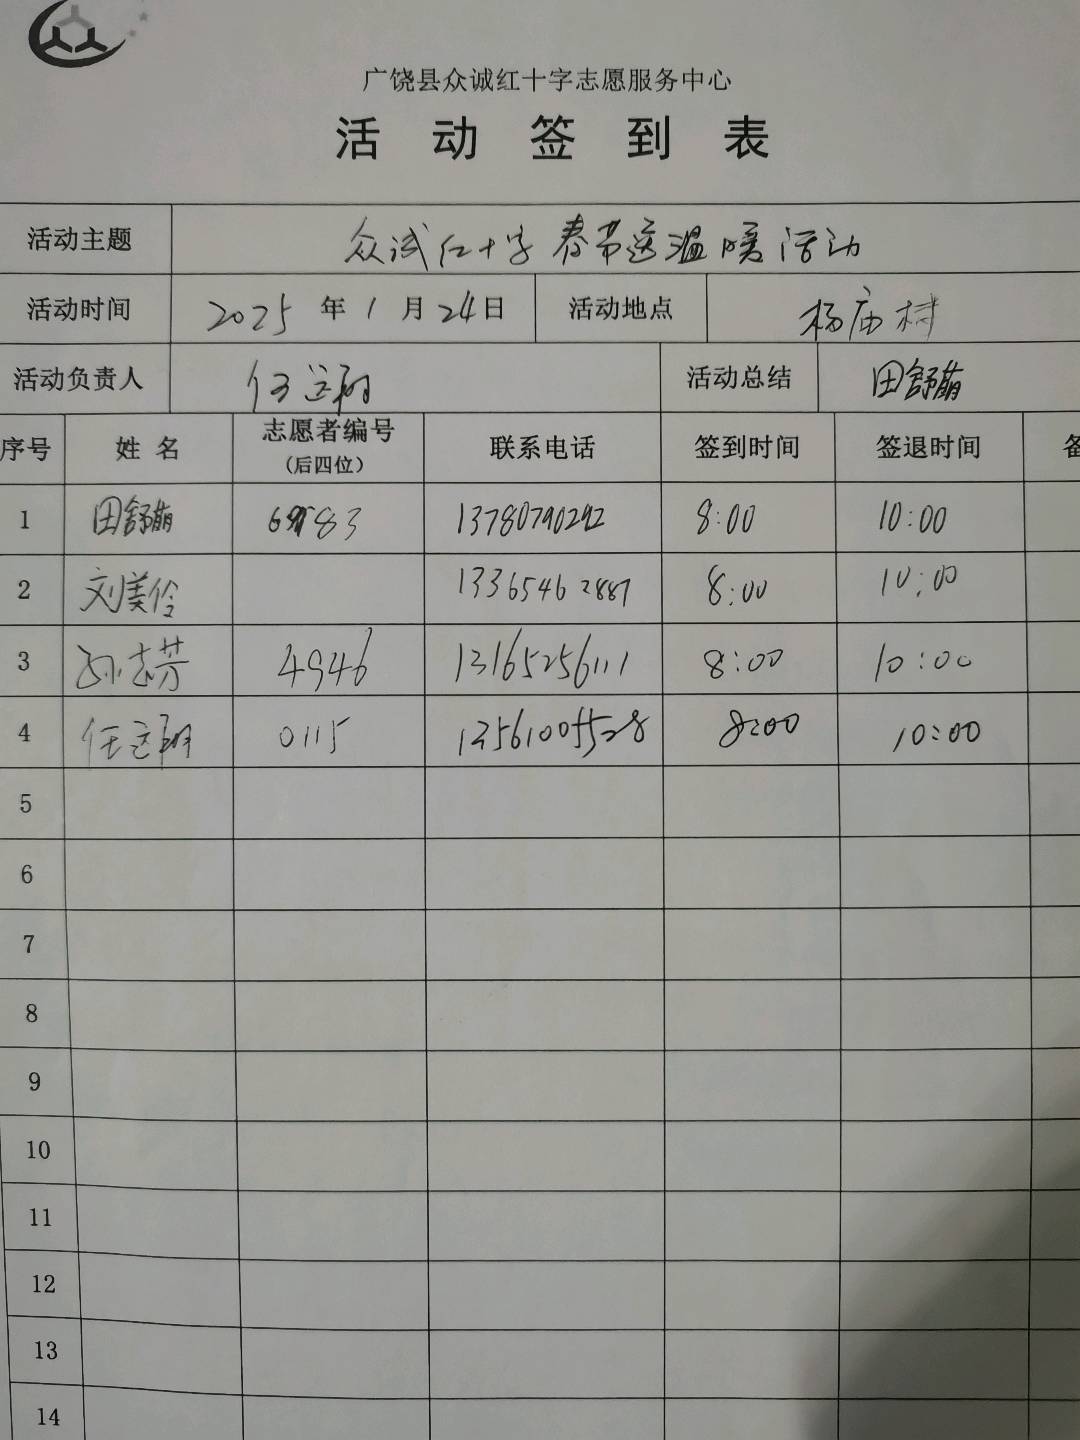 广饶县众诚红十字志愿服务中心
活动签到表
活动主题 众诚红十字春节送温暖活动
活动时间 2025年1月24日 活动地点 杨庙村
活动负责人 活动总结 田舒萌
序号 姓名 志愿者编号 联系电话 签到时间 签退时间 备
(后四位)
1 田舒萌 13780790292 8:00 10:00
2 刘美伶 13365462887 8:00 10:00
3 孙志芳 4946 13165256111 8:00 10:00
4 0115 13561005528 8:00 10:00
5
6
7
8
9
10
11
12
13
14